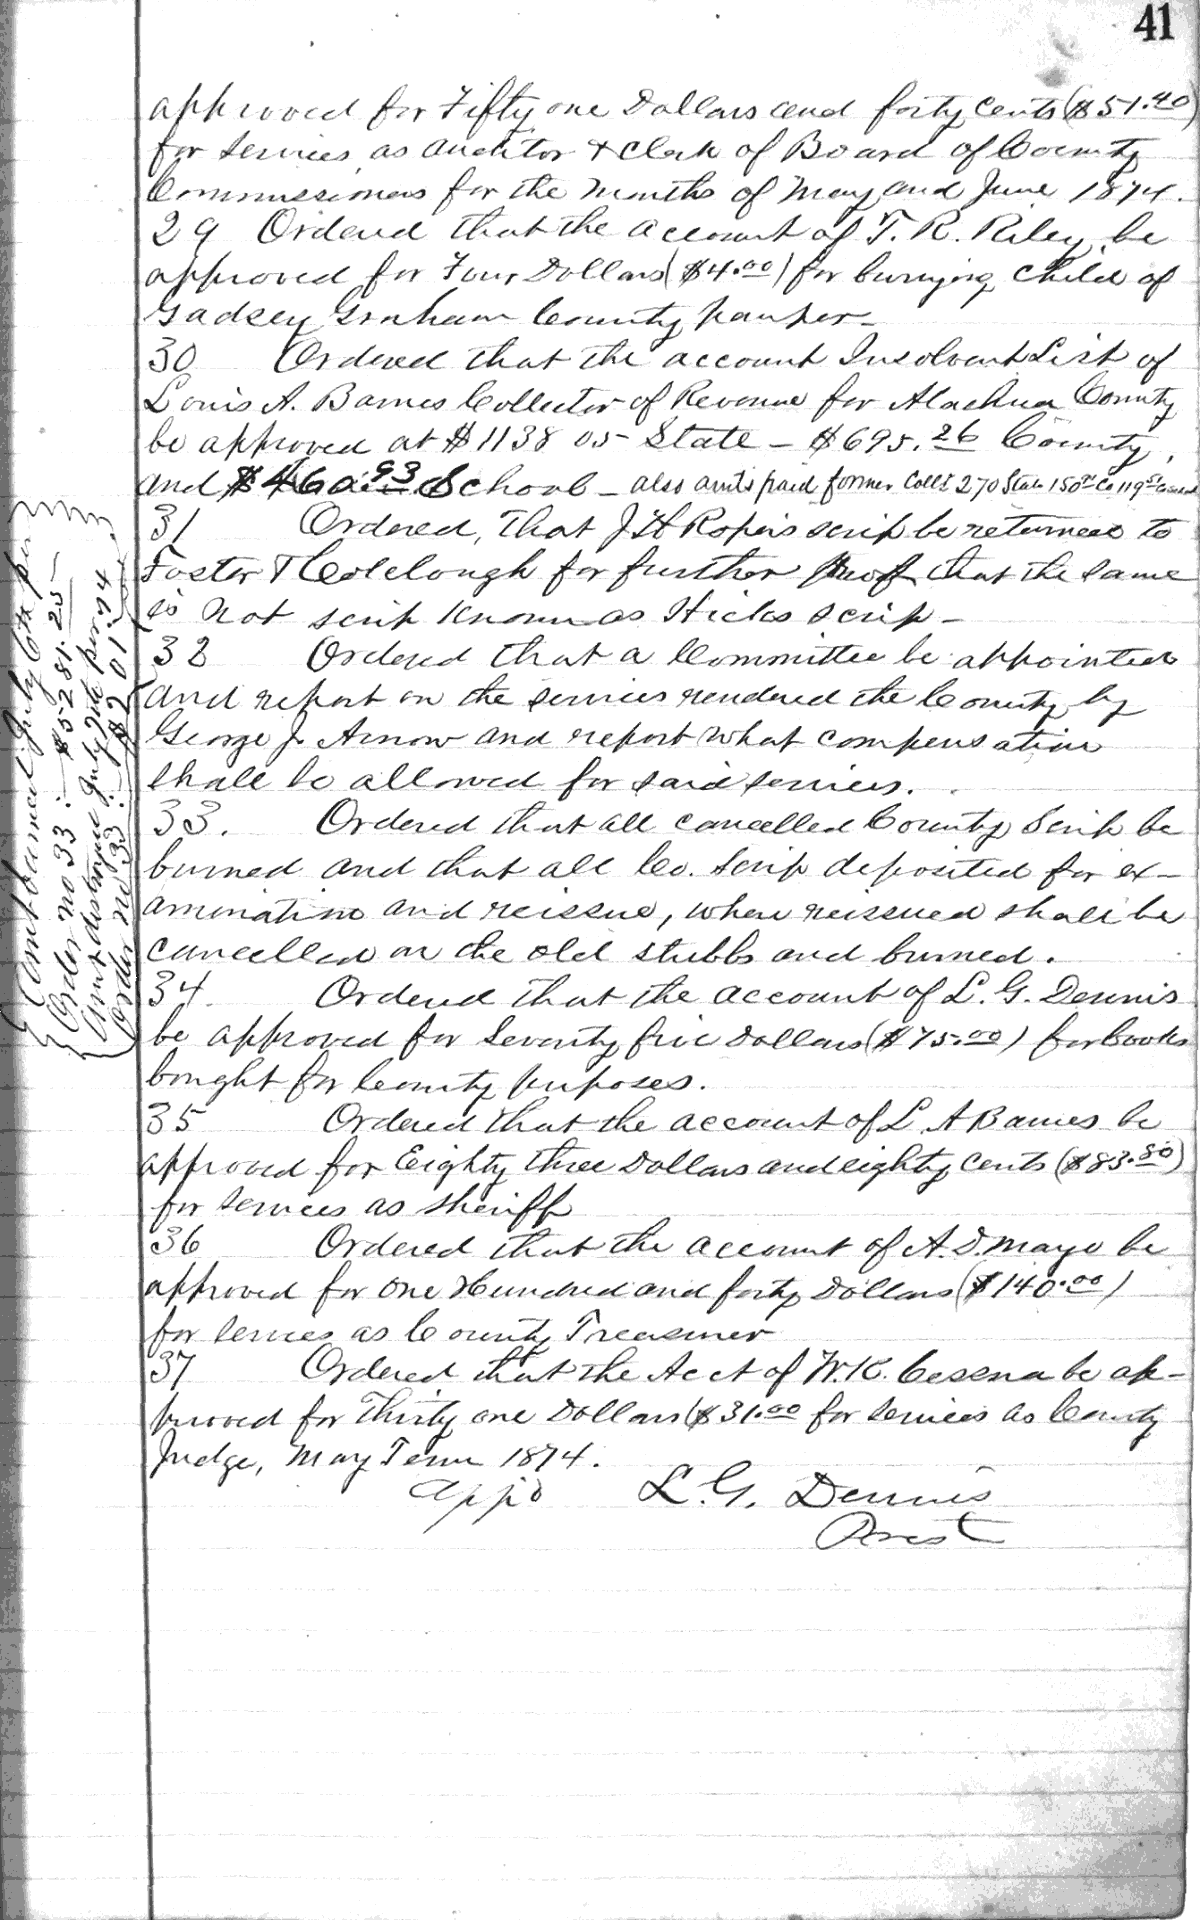 41
approved for Fifty one Dollars and forty cents ($51.40)
for services as auditor & Clerk of Board of County
Commissioners for the months of May and June 1874.
29 Ordered that the account of T. R. Riley be
approved for Four Dollars ($4.00) for burying child of
Gadsey Graham County pauper-
30 Ordered that the account Insolvent List of
Louis A. Barnes Collector of Revenue for Alachua County
be approved at $1138 05 State - $695.26 County,
and School - also amts paid former Coll 270 State 150 Co 119
31 Ordered, that J H Ropers scrip be returned to
Foster & Colclough for further proof that the same
is not scrip known as Hicks scrip-
32 Ordered that a Committee be appointed
and report on the services rendered the County by
George J. Arnow and report what compensation
shall be allowed for said services.
33. Ordered that all cancelled County Scrip be
burned and that all Co. Scrip deposited for ex-
amination and reissue, when reissued shall be
cancelled on the old stubbs and burned.
34. Ordered that the account of L. G. Dennis
be approved for Seventy five Dollars ($75.00) for books
bought for County purposes.
35 Ordered that the account of L A Barnes be
approved for Eighty three Dollars and eighty cents ($83.80)
for services as sheriff
36 Ordered that the account of A. D. Mayo be
approved for One Hundred and forty Dollars ($140.00)
for services as County Treasurer
37 Ordered that the Acct of W. K. Cessna be ap-
proved for Thirty one Dollars ($31.00 for services as County
Judge, May Term 1874.
Appd L. G. Dennis
Prest
Amt burned July 6th per
Order no 33: $5281.25
Amt destroyed July 7th per
Order no 33: